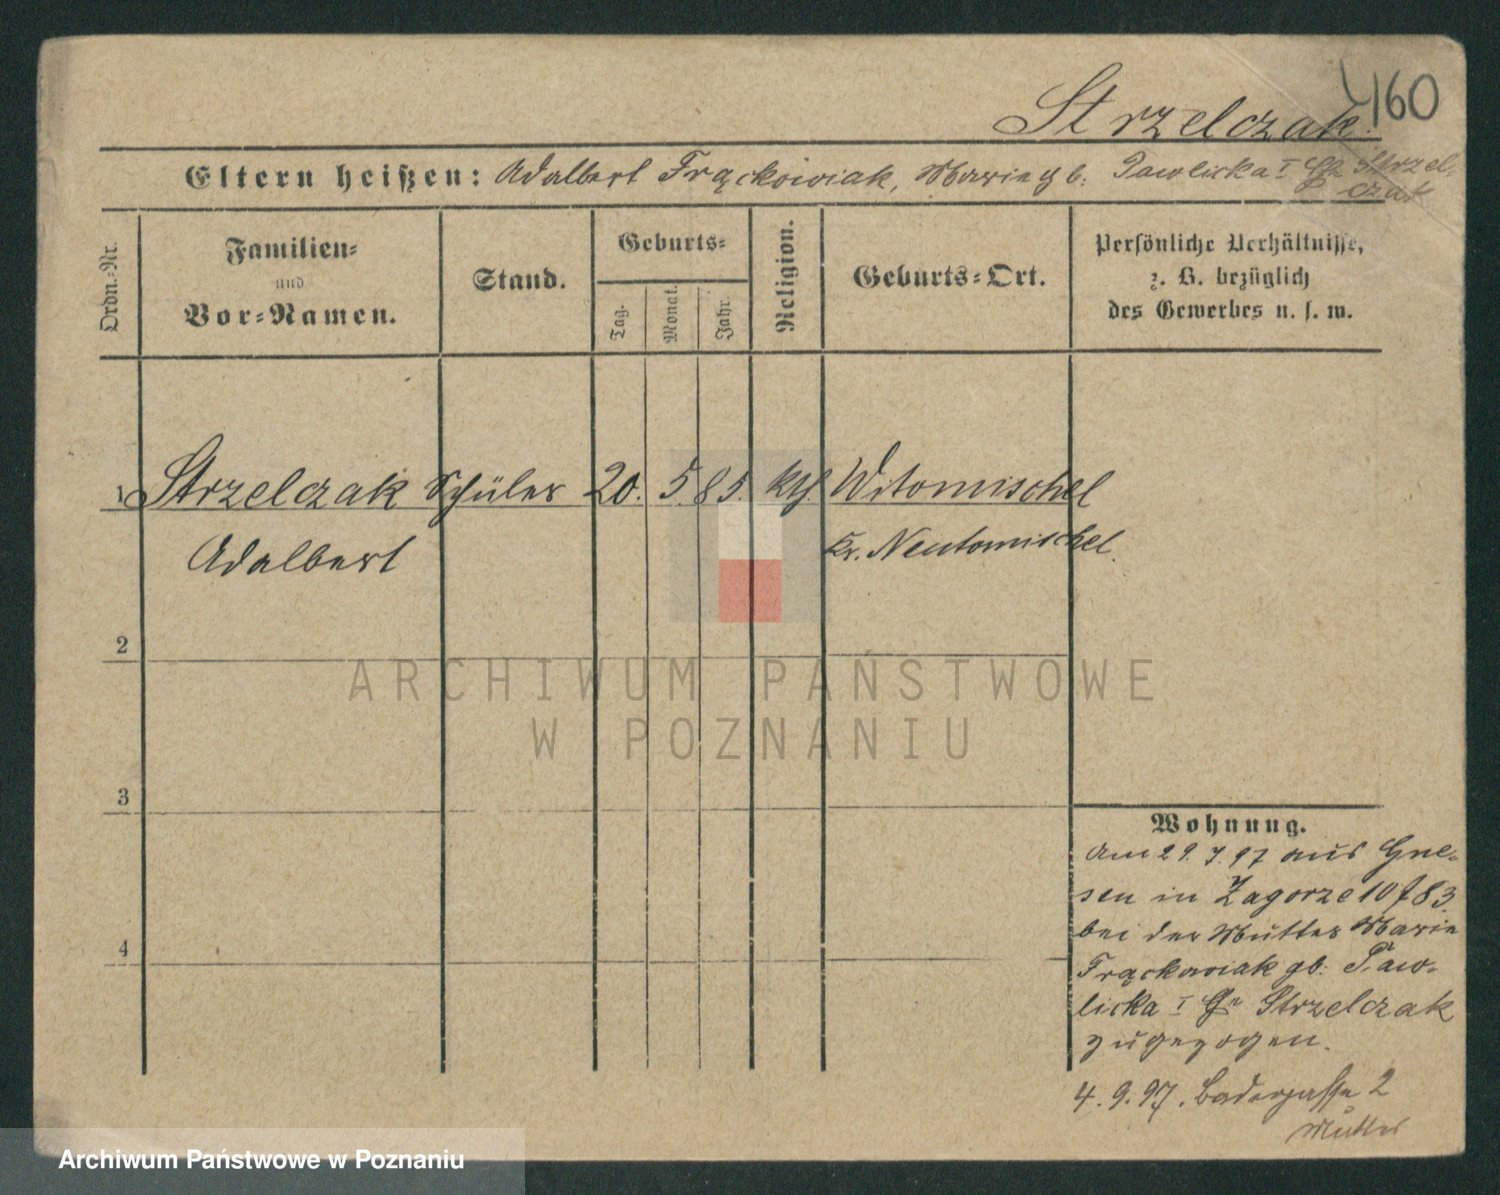 460
Strzelczak.
Eltern heißen: Adalbert Frąckowiak, Marie gb: Pawlicka I Strzel-
czak
Ordn.-Nr.
Familien-
und
Vor-Namen.
Stand.
Geburts-
Tag.
Monat.
Jahr.
Religion.
Geburts-Ort.
Persönliche Verhältnisse,
z. B. bezüglich
des Gewerbes u. s. w.
1 Strzelczak Schüler 20. 5. 85. kth Witomischel
Adalbert Kr. Neutomischel.
2
3
4
Wohnung.
am 29. 7. 97 aus Gne-
sen in Zagorze 10 f 83
bei der Mutter Marie
Frąckowiak gb: Paw-
licka I Strzelczak
zugezogen.
4. 9. 97. Badergasse 2
Mutter
ARCHIWUM PAŃSTWOWE
W POZNANIU
Archiwum Państwowe w Poznaniu